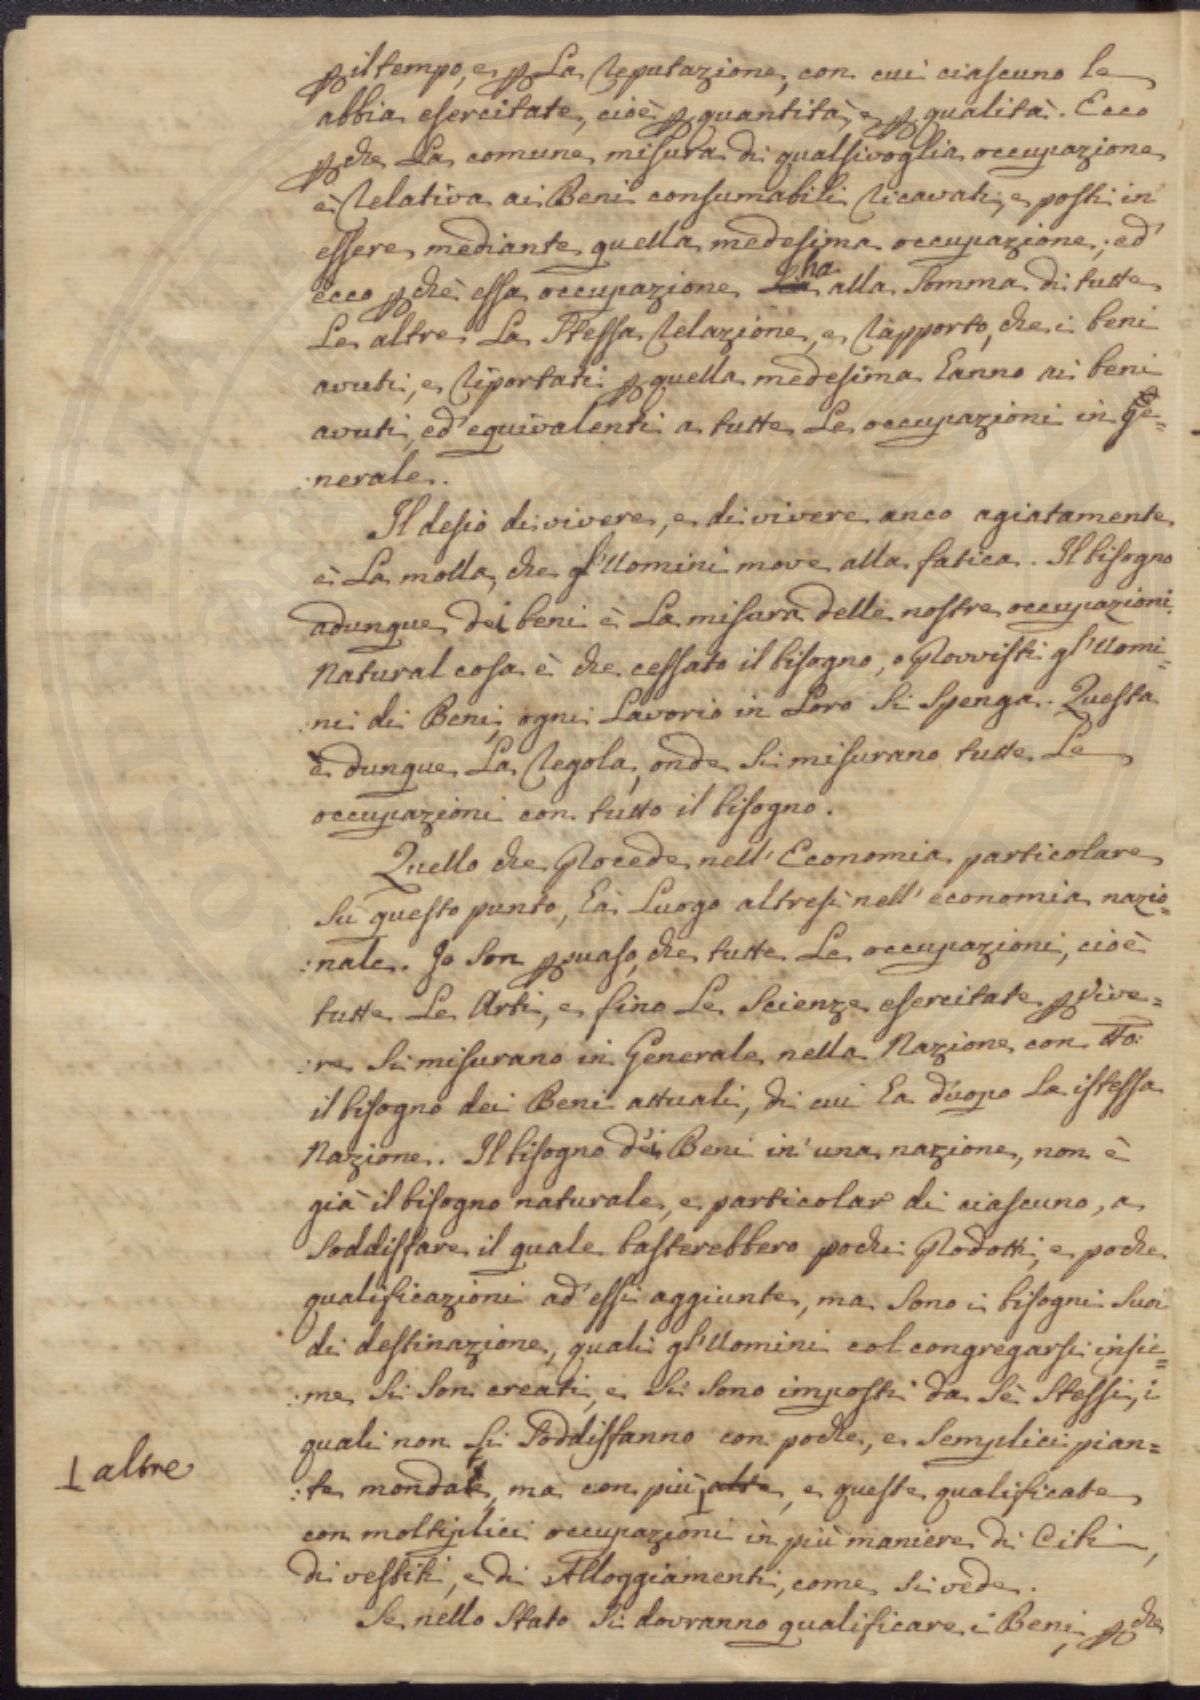 p il tempo, e p La reputazione, con cui ciascuno le
abbia esercitate, cioè p quantità, e p qualità. Ecco
pche La comune misura di qualsivoglia occupazione
è relativa ai Beni consumabili ricavati, e posti in
essere mediante quella medesima occupazione; ed
ecco pchè essa occupazione ha alla somma di tutte
Le altre La stessa relazione, e rapporto, che i beni
avuti, e riportati p quella medesima anno ai beni
avuti, ed equivalenti a tutte Le occupazioni in ge=
:nerale.
Il desio di vivere, e di vivere anco agiatamente
è La molla, che gl'Uomini move alla fatica. Il bisogno
adunque dei beni è La misura delle nostre occupazioni.
Natural cosa è che cessato il bisogno, o Provvisti gl'Uomi=
:ni di Beni, ogni Lavorio in Loro si spenga. Questa
è dunque La regola, onde si misurano tutte Le
occupazioni con tutto il bisogno.
Quello che Procede nell'Economia particolare
su questo punto, à Luogo altresì nell'economia nazio=
:nale. Io son psuaso, che tutte Le occupazioni, cioè
tutte Le Arti, e fino Le Scienze esercitate p vive=
:re si misurano in Generale nella Nazione con tto
il bisogno dei Beni attuali, di cui a d'uopo La istessa
Nazione. Il bisogno dei Beni in una nazione, non è
già il bisogno naturale, e particolar di ciascuno, a
soddisfare il quale basterebbero pochi Prodotti, e poche
qualificazioni ad essi aggiunte, ma sono i bisogni suoi
di destinazione, quali gl'Uomini col congregarsi insie=
:me si son creati, e si sono imposti da sè stessi, i
quali non si soddisfanno con poche, e semplici pian=
:te mondate, ma con più altre, e queste qualificate
⊥ altre
con moltiplici occupazioni in più maniere di Cibi,
di vestiti, e di Alloggiamenti, come si vede.
Se nello stato si dovranno qualificare i Beni, pche